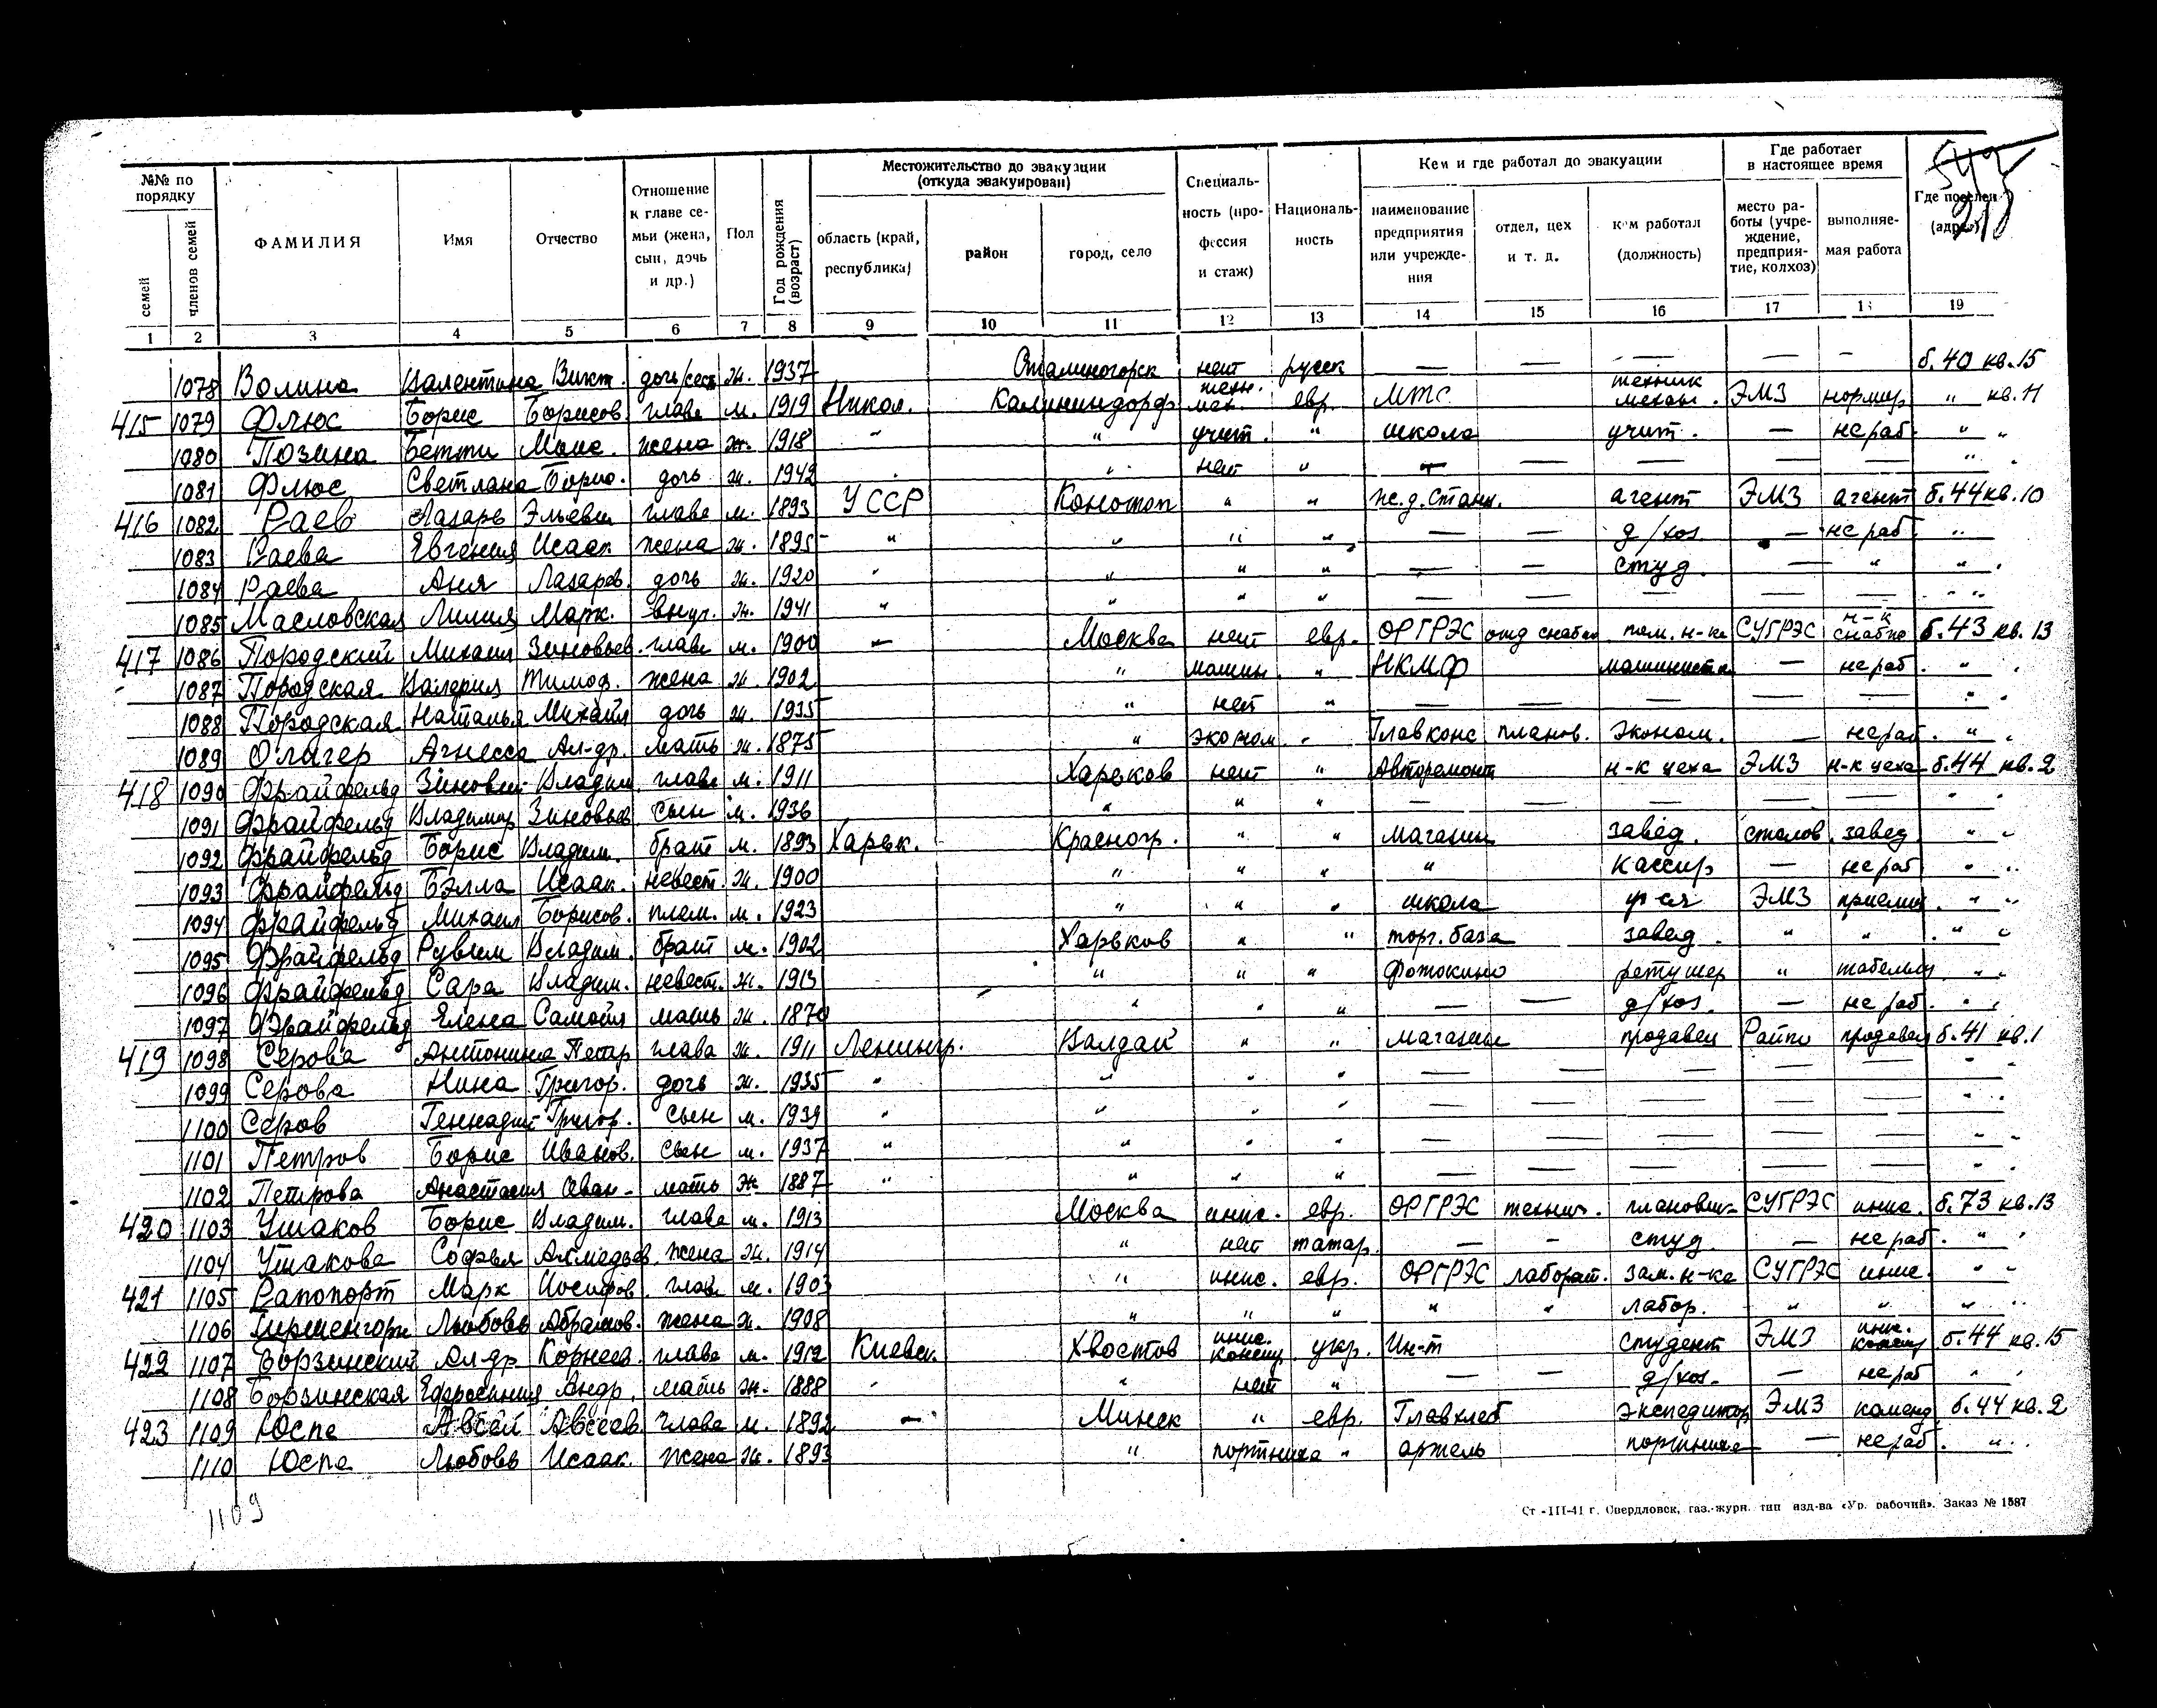 №№ по порядку | ФАМИЛИЯ | Имя | Отчество | Отношение к главе семьи (жена, сын, дочь и др.) | Пол | Год рождения (возраст) | Местожительство до эвакуации (откуда эвакуирован) | Специальность (профессия и стаж) | Национальность | Кем и где работал до эвакуации | Где работает в настоящее время | Где поселен (адрес)
семей | членов семей | область (край, республика) | район | город, село | наименование предприятия или учреждения | отдел, цех и т. д. | кем работал (должность) | место работы (учреждение, предприятие, колхоз) | выполняемая работа
1 2 3 4 5 6 7 8 9 10 11 12 13 14 15 16 17 18 19
1078 Волина Валентина Викт. дочь/сест ж. 1937 Сталиногорск нет русск — — — — — б. 40 кв. 15
415 1079 Флюс Борис Борисов. глава м. 1919 Никол. Калининдорф техн. мех. евр. МТС техник механ. ЭМЗ нормир. " кв. 11
1080 Позина Бетти Моис. жена ж. 1918 " " учит. " школа учит. — не раб. " "
1081 Флюс Светлана Борис. дочь ж. 1942 " " нет " — — — — — " "
416 1082 Раев Лазарь Эльевич глава м. 1893 УССР Конотоп " " ж.д. станц. агент ЭМЗ агент б. 44 кв. 10
1083 Раева Евгения Исаак. жена ж. 1895 " " " " — — д/хоз — не раб. "
1084 Раева Аня Лазарев. дочь ж. 1920 " " " " — — студ. — " " "
1085 Масловская Лилия Марк. внуч. ж. 1941 " " " " — — — — — " "
417 1086 Породский Михаил Зиновьев. глава м. 1900 — Москва нет евр. ОРГРЭС отд снабж пом. н-ка СУГРЭС н-к снабж б. 43 кв. 13
1087 Породская Валерия Тимоф. жена ж. 1902 " машин. " НКМФ машинистка — не раб. " "
1088 Породская Наталья Михайл дочь ж. 1935 " нет " — — — — — " "
1089 Олигер Агнесса Ал-др. мать ж. 1875 " эконом. " Главконс планов. эконом. — не раб. " "
418 1090 Фрайфельд Зиновий Владим. глава м. 1911 Харьков нет " Авторемонт н-к цеха ЭМЗ н-к цеха б. 44 кв. 2
1091 Фрайфельд Владимир Зиновьев. сын м. 1936 " " " — — — — — " "
1092 Фрайфельд Борис Владим. брат м. 1893 Харьк. Красногр. " " магазин завед. столов. завед. " "
1093 Фрайфельд Бэлла Исаак. невест. ж. 1900 " " " " кассир — не раб " "
1094 Фрайфельд Михаил Борисов. плем. м. 1923 " " " школа уч-ся ЭМЗ приемщ. " "
1095 Фрайфельд Рувим Владим. брат м. 1902 Харьков " " торг. база завед. " " " "
1096 Фрайфельд Сара Владим. невест. ж. 1913 " " " Фотокино ретушер " табельщ " "
1097 Фрайфельд Елена Самойл мать ж. 1870 " " " — — д/хоз. — не раб. " "
419 1098 Серова Антонина Петр глава ж. 1911 Ленингр. Валдай " " магазин продавец Райпо продавец б. 41 кв. 1
1099 Серова Нина Григор. дочь ж. 1935 " " " " — — — — — " "
1100 Серов Геннадий Григор. сын м. 1939 " " " " — — — — — " "
1101 Петров Борис Иванов. сын м. 1937 " " " " — — — — — " "
1102 Петрова Анастасия Иван. мать ж. 1887 " " " " — — — — — " "
420 1103 Ушаков Борис Владим. глава м. 1913 Москва инж. евр. ОРГРЭС технич. плановик СУГРЭС инж. б. 73 кв. 13
1104 Ушакова Софья Ахмедьев. жена ж. 1914 " нет татар. — — студ. — не раб. " "
421 1105 Рапопорт Марк Иосифов. глав м. 1903 " инж. евр. ОРГРЭС лаборат. зам. н-ка СУГРЭС инж. " "
1106 Гиршенгорн Любовь Абрамов. жена ж. 1908 " " " " " лабор. " " " "
422 1107 Борзинский Ал-др Корнеев. глава м. 1912 Киевск. Хвостов инж. констр. укр. Ин-т студент ЭМЗ инж. констр б. 44 кв. 15
1108 Борзинская Ефросиния Андр. мать ж. 1888 " " нет " — — д/хоз. — не раб " "
423 1109 Юспа Авсей Авсеев. глава м. 1892 — Минск " евр. Главхлеб экспедитор ЭМЗ коменд. б. 44 кв. 2
1110 Юспа Любовь Исаак. жена ж. 1893 " портниха " артель портниха — не раб. " "
1109
Ст.-III-41 г. Свердловск, газ.-журн. тип изд-ва «Ур. рабочий». Заказ № 1587